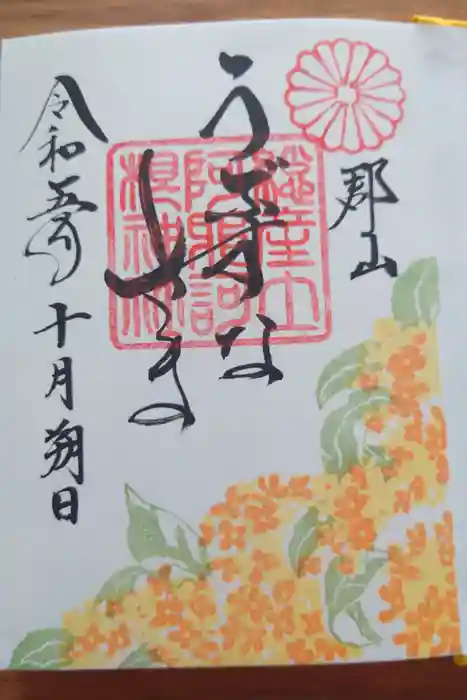 郡山
うぶすな
さま
令和五年十月朔日
総産土
阿邪訶
根神社